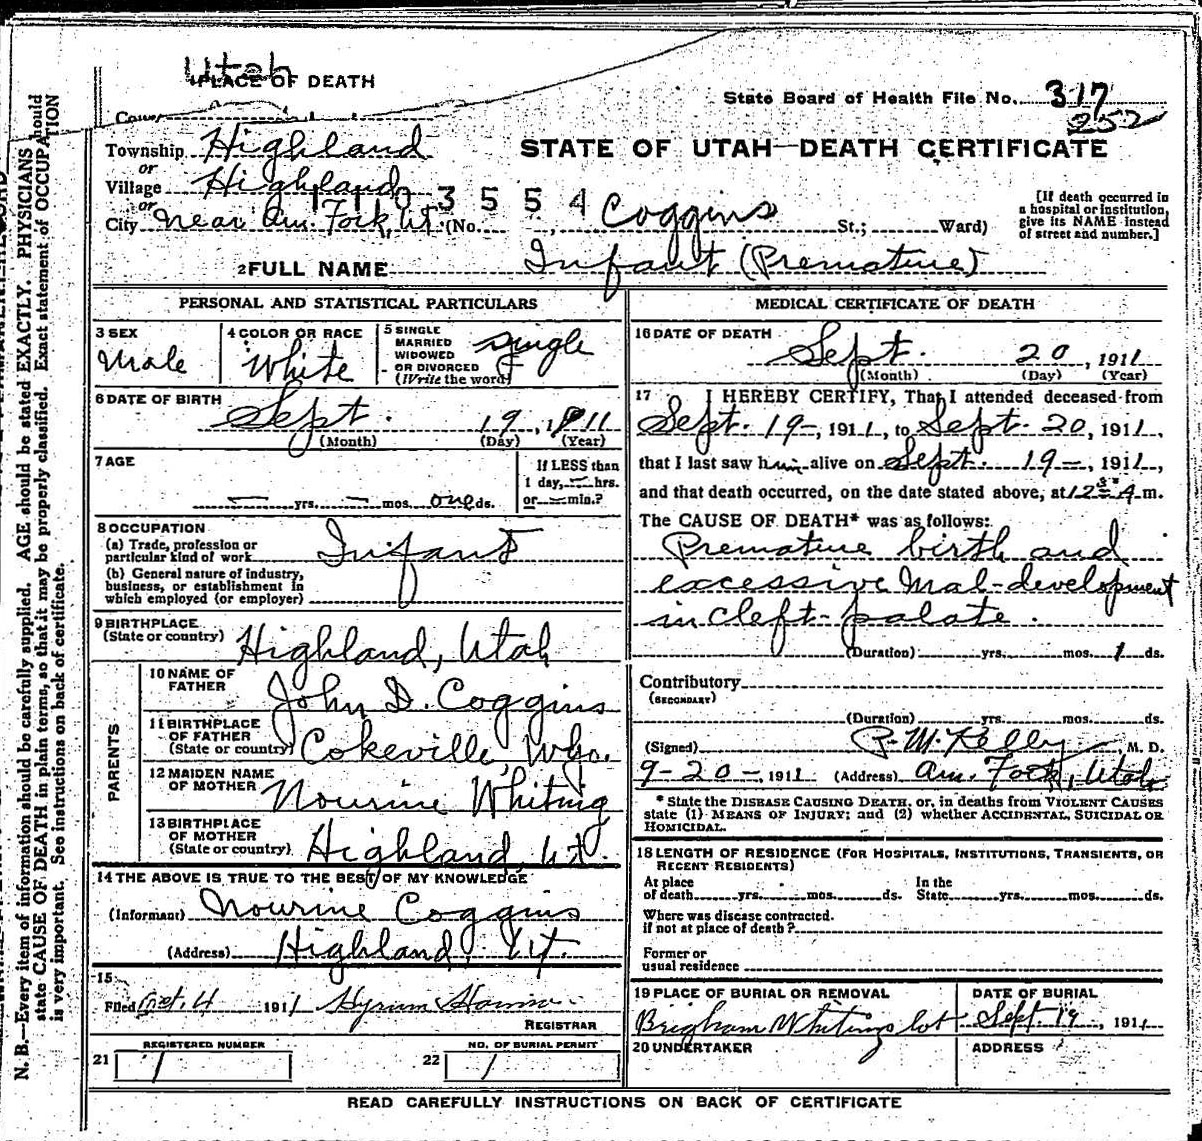 Utah
PLACE OF DEATH
State Board of Health File No. 317
252
Township Highland
or
Village Highland
or
1103554
City near Am. Fork, Ut. (No. , Coggins St.; Ward)
STATE OF UTAH—DEATH CERTIFICATE
[If death occurred in
a hospital or institution,
give its NAME instead
of street and number.]
2 FULL NAME Infant (Premature)
PERSONAL AND STATISTICAL PARTICULARS
3 SEX
Male
4 COLOR OR RACE
White
5 SINGLE
MARRIED
WIDOWED
OR DIVORCED
(Write the word)
Single
6 DATE OF BIRTH
Sept. 19, 1911
(Month) (Day) (Year)
7 AGE
— yrs. — mos. one ds.
If LESS than
1 day, — hrs.
or — min.?
8 OCCUPATION
(a) Trade, profession or
particular kind of work Infant
(b) General nature of industry,
business, or establishment in
which employed (or employer)
9 BIRTHPLACE
(State or country) Highland, Utah
PARENTS
10 NAME OF
FATHER John D. Coggins
11 BIRTHPLACE
OF FATHER
(State or country) Cokeville, Wyo.
12 MAIDEN NAME
OF MOTHER Nourine Whiting
13 BIRTHPLACE
OF MOTHER
(State or country) Highland, Ut.
14 THE ABOVE IS TRUE TO THE BEST OF MY KNOWLEDGE
(Informant) Nourine Coggins
(Address) Highland, Ut.
15
Filed Oct. 4 1911 Hyrum
REGISTRAR
21 REGISTERED NUMBER
1
22 NO. OF BURIAL PERMIT
1
MEDICAL CERTIFICATE OF DEATH
16 DATE OF DEATH
Sept. 20, 1911
(Month) (Day) (Year)
17 I HEREBY CERTIFY, That I attended deceased from
Sept. 19-, 1911, to Sept. 20, 1911,
that I last saw him alive on Sept. 19-, 1911,
and that death occurred, on the date stated above, at 12 A m.
The CAUSE OF DEATH* was as follows:
Premature birth and
excessive mal-development
in cleft-palate.
(Duration) yrs. mos. 1 ds.
Contributory
(SECONDARY)
(Duration) yrs. mos. ds.
(Signed) R. M. Kelly, M. D.
9-20-, 1911 (Address) Am. Fork, Utah
* State the DISEASE CAUSING DEATH, or, in deaths from VIOLENT CAUSES
state (1) MEANS OF INJURY; and (2) whether ACCIDENTAL, SUICIDAL OR
HOMICIDAL.
18 LENGTH OF RESIDENCE (FOR HOSPITALS, INSTITUTIONS, TRANSIENTS, OR
RECENT RESIDENTS)
At place
of death yrs. mos. ds.
In the
State yrs. mos. ds.
Where was disease contracted.
if not at place of death?
Former or
usual residence
19 PLACE OF BURIAL OR REMOVAL
Brigham Whitings lot
DATE OF BURIAL
Sept. 19, 1911
20 UNDERTAKER
ADDRESS
READ CAREFULLY INSTRUCTIONS ON BACK OF CERTIFICATE
N. B.—Every item of information should be carefully supplied. AGE should be stated EXACTLY. PHYSICIANS should
state CAUSE OF DEATH in plain terms, so that it may be properly classified. Exact statement of OCCUPATION
is very important. See instructions on back of certificate.